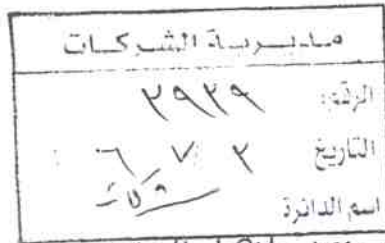 مديرية الشركات
الرقم: ٢٩٢٩
التاريخ ٢ ٧ ٦
اسم الدائرة